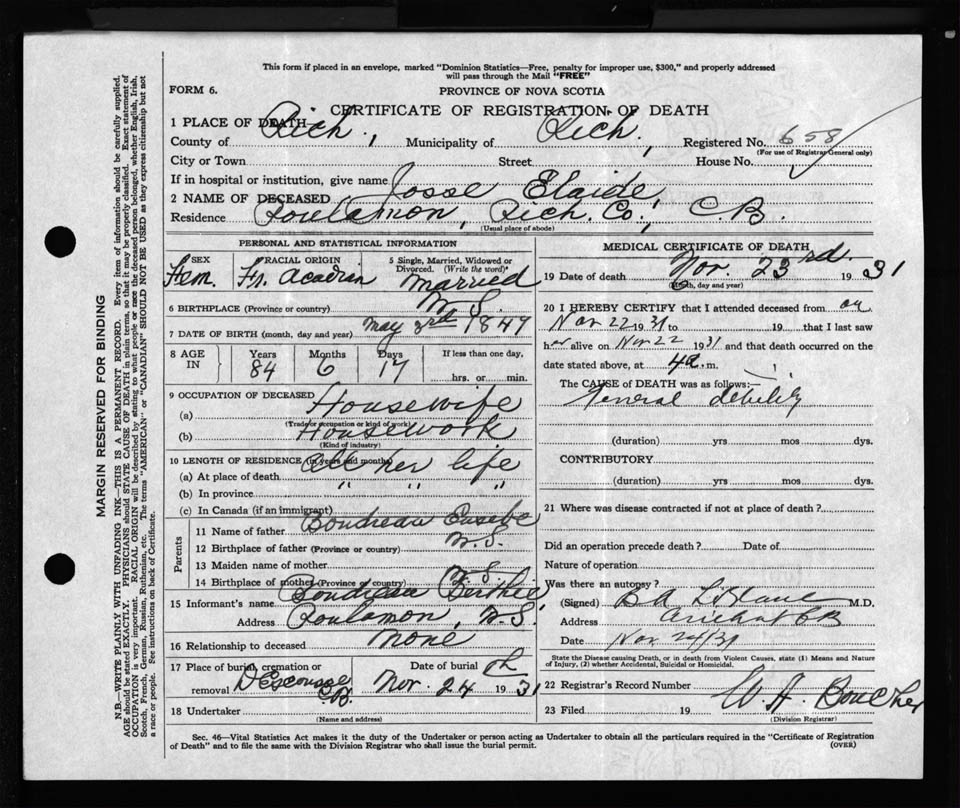 This form if placed in an envelope, marked "Dominion Statistics—Free, penalty for improper use, $300," and properly addressed
will pass through the Mail "FREE"
FORM 6.
PROVINCE OF NOVA SCOTIA
CERTIFICATE OF REGISTRATION OF DEATH
1 PLACE OF DEATH
County of Rich., Municipality of Rich., Registered No. 658
(For use of Registrar General only)
City or Town Street House No.
If in hospital or institution, give name
2 NAME OF DECEASED Josse Elaide,
Residence Poulamon, Rich. Co., C.B.
(Usual place of abode)
PERSONAL AND STATISTICAL INFORMATION
SEX RACIAL ORIGIN 5 Single, Married, Widowed or
Divorced. (Write the word)
Fem. Fr. Acadian Married
6 BIRTHPLACE (Province or country) N.S.
7 DATE OF BIRTH (month, day and year) May 3rd 1847
8 AGE IN Years Months Days If less than one day,
84 6 17 hrs. or min.
9 OCCUPATION OF DECEASED
(a) Housewife
(Trade or occupation or kind of work)
(b) Housework
(Kind of industry)
10 LENGTH OF RESIDENCE (in years and months)
(a) At place of death All her life
(b) In province " " "
(c) In Canada (if an immigrant)
Parents
11 Name of father Boudreau Eusebe
12 Birthplace of father (Province or country) N.S.
13 Maiden name of mother
14 Birthplace of mother (Province or country) N.S.
15 Informant's name Boudreau
Address Poulamon, N.S.
16 Relationship to deceased None
17 Place of burial, cremation or Date of burial
removal D'Escousse C.B. Nov. 24th 1931
18 Undertaker
(Name and address)
MEDICAL CERTIFICATE OF DEATH
19 Date of death Nov. 23rd. 1931
(Month, day and year)
20 I HEREBY CERTIFY that I attended deceased from on
Nov 22 1931 to 19 that I last saw
her alive on Nov 22 1931 and that death occurred on the
date stated above, at 4 a. m.
The CAUSE of DEATH was as follows:—
General debility
(duration) yrs mos dys.
CONTRIBUTORY
(duration) yrs mos dys.
21 Where was disease contracted if not at place of death?
Did an operation precede death? Date of
Nature of operation
Was there an autopsy?
(Signed) B A LeBlanc M.D.
Address Arichat CB
Date Nov 24/31
State the Disease causing Death, or in death from Violent Causes, state (1) Means and Nature
of Injury, (2) whether Accidental, Suicidal or Homicidal.
22 Registrar's Record Number
23 Filed 19 W. A. Boucher
(Division Registrar)
Sec. 46—Vital Statistics Act makes it the duty of the Undertaker or person acting as Undertaker to obtain all the particulars required in the "Certificate of Registration
of Death" and to file the same with the Division Registrar who shall issue the burial permit. (OVER)
MARGIN RESERVED FOR BINDING
N.B.—WRITE PLAINLY WITH UNFADING INK—THIS IS A PERMANENT RECORD. Every item of information should be carefully supplied.
AGE should be stated EXACTLY. PHYSICIANS should STATE CAUSE OF DEATH in plain terms, so that it may be properly classified. Exact statement of
OCCUPATION is very important. RACIAL ORIGIN will be described by stating to what people or race the deceased person belonged, whether English, Irish,
Scotch, French, German, Russian, Ruthenian, etc. The terms "AMERICAN" or "CANADIAN" SHOULD NOT BE USED as they express citizenship but not
a race or people. See instructions on back of Certificate.